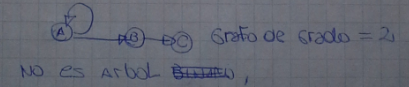 A B C Grafo de Grado = 2,
No es Arbol